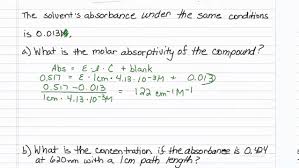 The solvent's absorbance under the same conditions
is 0.013.
a) What is the molar absorptivity of the compound?
Abs = ε·l·C + blank
0.517 = ε·1cm·4.13·10⁻³M + 0.013
0.517-0.013 = 122 cm⁻¹M⁻¹
1cm·4.13·10⁻³M
b) What is the concentration if the absorbance is 0.424
at 620nm with a 1cm path length?